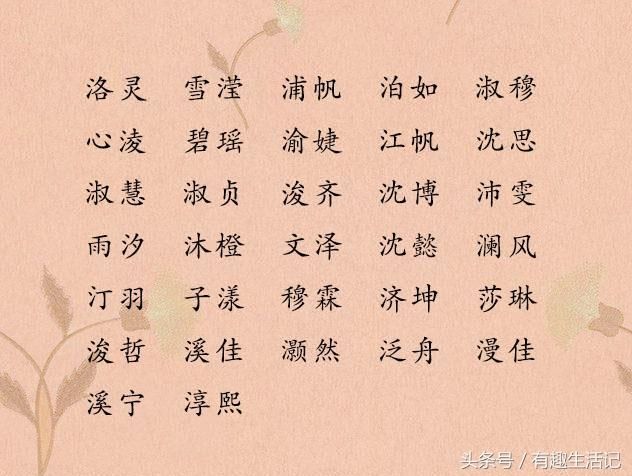 洛灵 雪滢 浦帆 泊如 淑穆
心淩 碧瑶 渝婕 江帆 沈思
淑慧 淑贞 浚齐 沈博 沛雯
雨汐 沐橙 文泽 沈懿 澜风
汀羽 子漾 穆霖 济坤 莎琳
浚哲 溪佳 灏然 泛舟 漫佳
溪宁 淳熙
头条号 / 有趣生活记